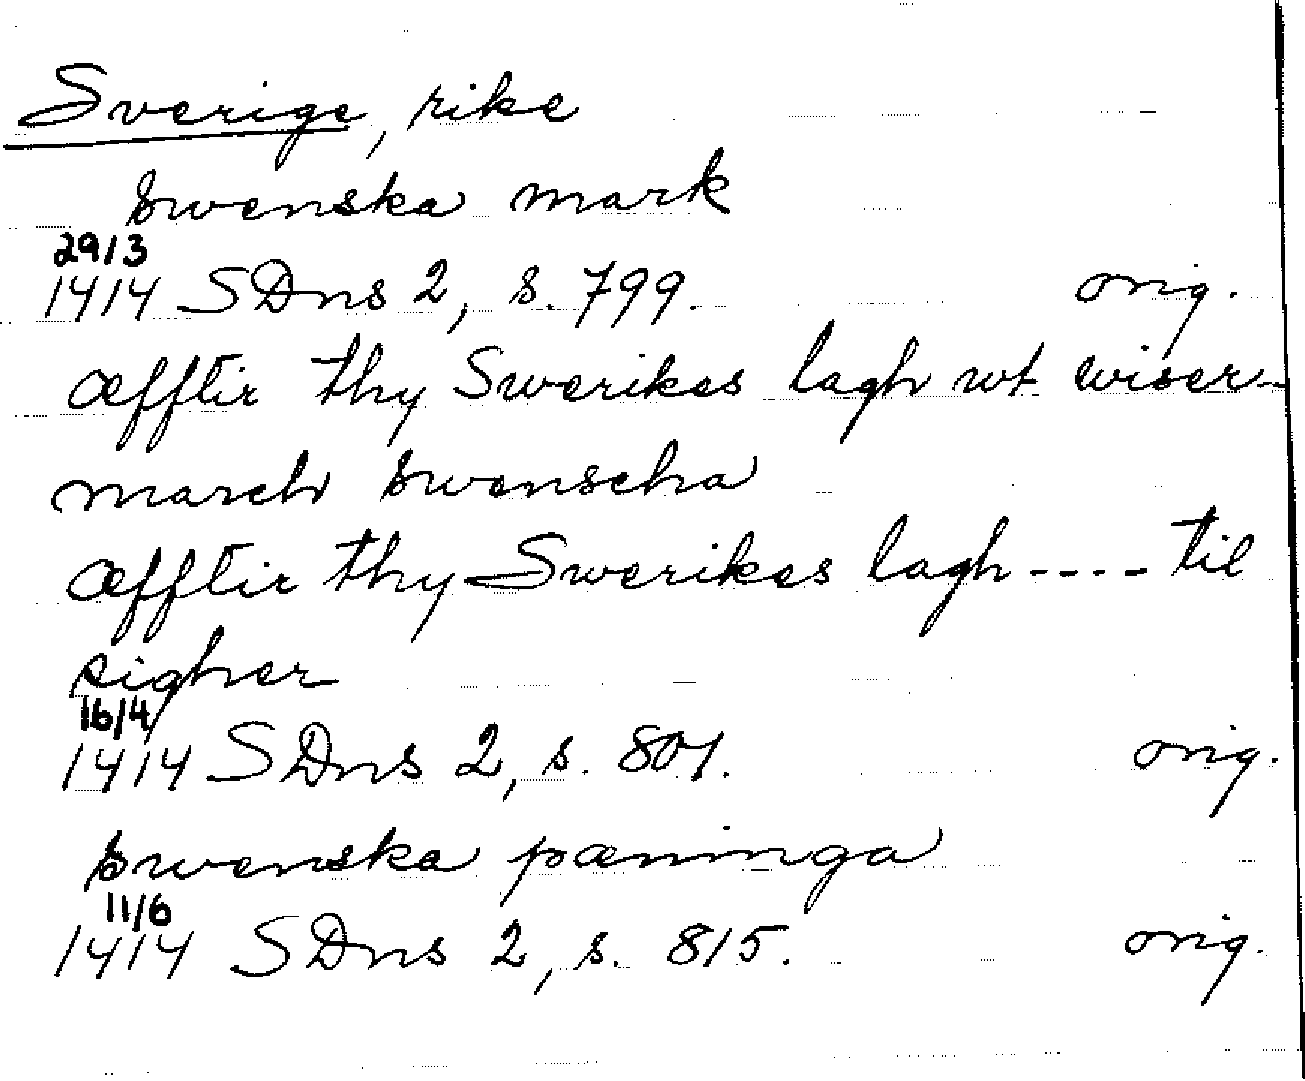 Sverige, rike
swenska mark
29/3
1414 SDns 2, s. 799. orig.
æfftir thy Swerikes lagh wt wiser -
march swenscha
æfftir thy Swerikes lagh ---- til
sigher
16/4
1414 SDns 2, s. 801. orig.
swenska pæninga
11/6
1414 SDns 2, s. 815. orig.